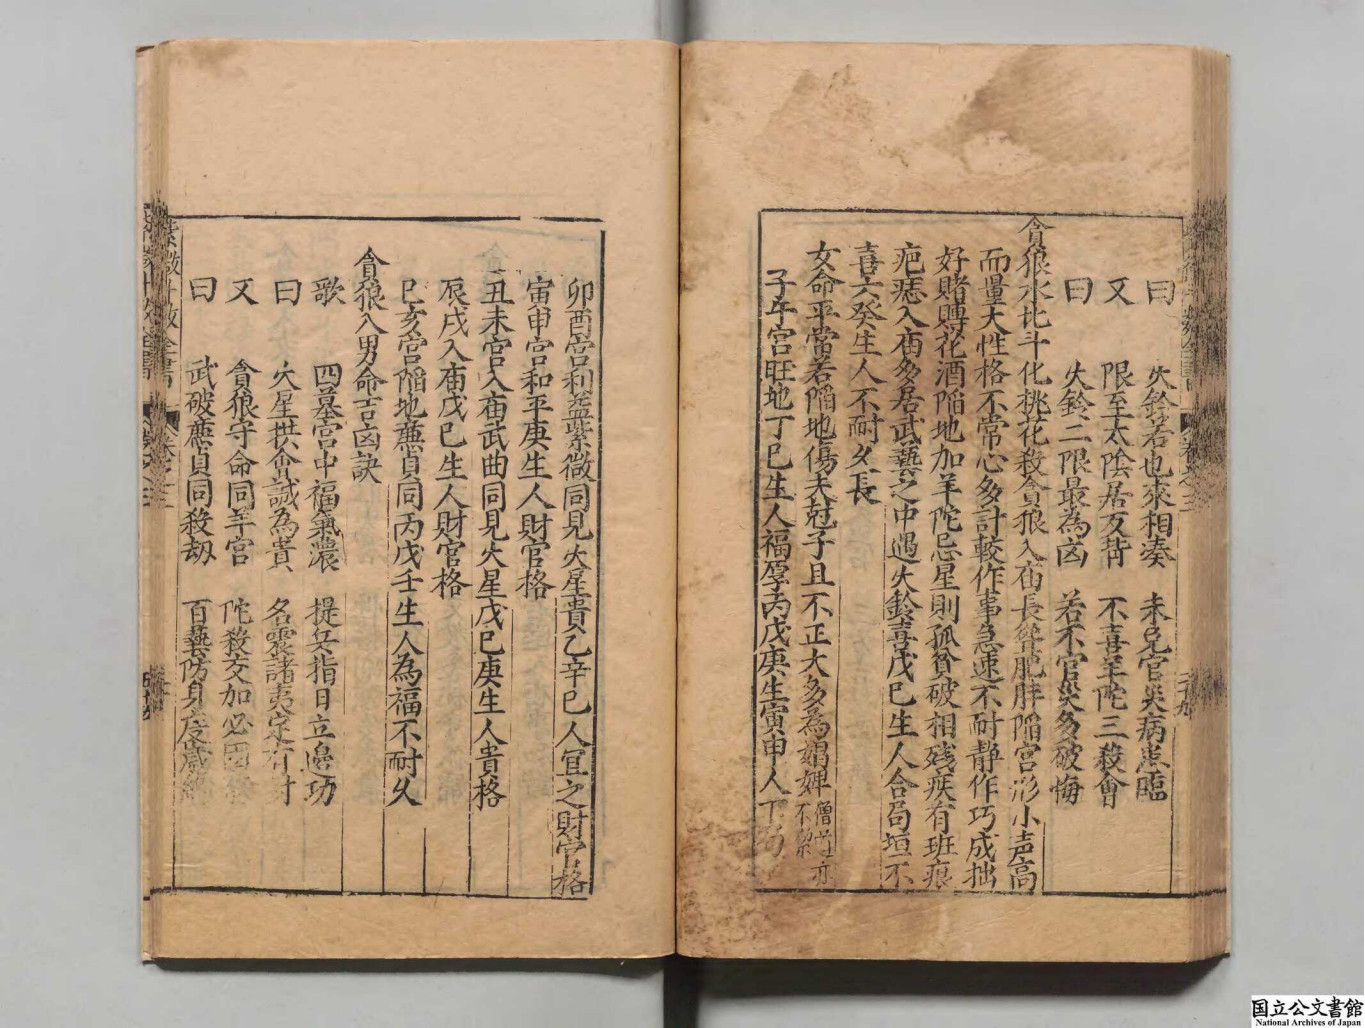 曰　火鈴若也來相湊　未免官災病患臨
又　限至太陰居反背　不喜羊陀三殺會
曰　火鈴二限最為凶　若不官災多破悔
貪狼水北斗化桃花殺貪狼入庙長聳肥胖陷宮形小声高
而量大性格不常心多計較作事急速不耐靜作巧成拙
好賭賻花酒陷地加羊陀忌星則孤貧破相残疾有班痕
疤痣入庙多居武藝之中遇火鈴喜戊己生人合局垣不
喜六癸生人不耐久長
女命平常若陷地傷夫尅子且不正大多為娼婢僧道亦不潔
子午宮旺地丁己生人福厚丙戊庚生寅申人下局
卯酉宮利益紫微同見火星貴乙辛己人宜之財官格
寅申宮和平庚生人財官格
丑未宮入庙武曲同見火星戊己庚生人貴格
辰戌入庙戊己生人財官格
巳亥宮陷地亷貞同丙戊壬生人為福不耐久
貪狼入男命吉凶訣
歌　四墓宮中福氣濃　提兵指日立邊功
曰　火星拱會誠為貴　名震諸夷定有封
又　貪狼守命同羊宮　陀殺交加必
曰　武破亷貞同殺劫　百藝防身度歲終
国立公文書館
National Archives of Japan